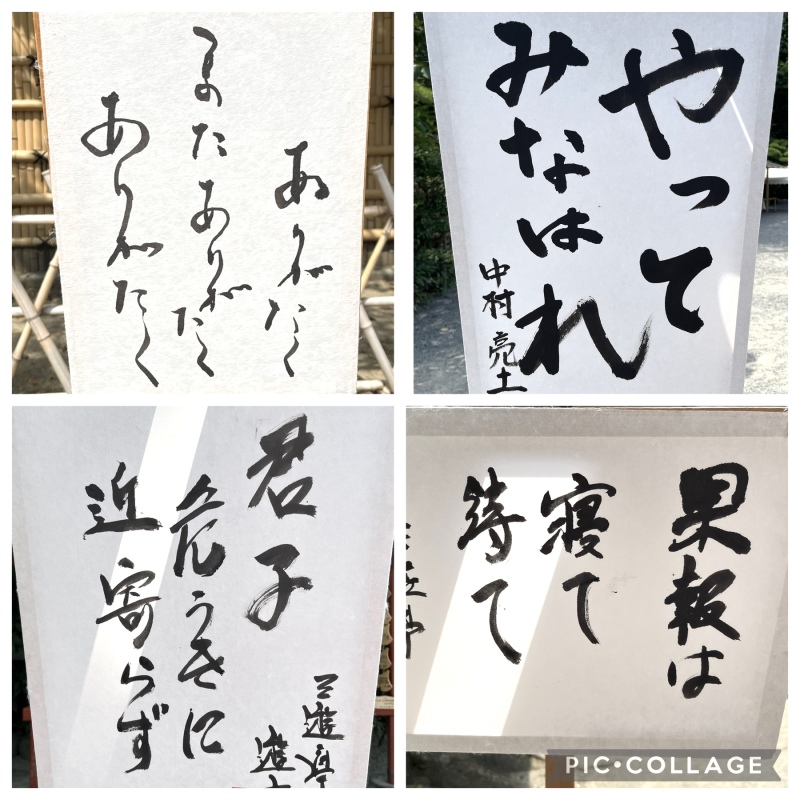 ありがたく
またありがたく
ありがたく
やって
みなはれ
中村亮土
君子
危うきに
近寄らず
三遊亭
遊
果報は
寝て
待て
PIC•COLLAGE